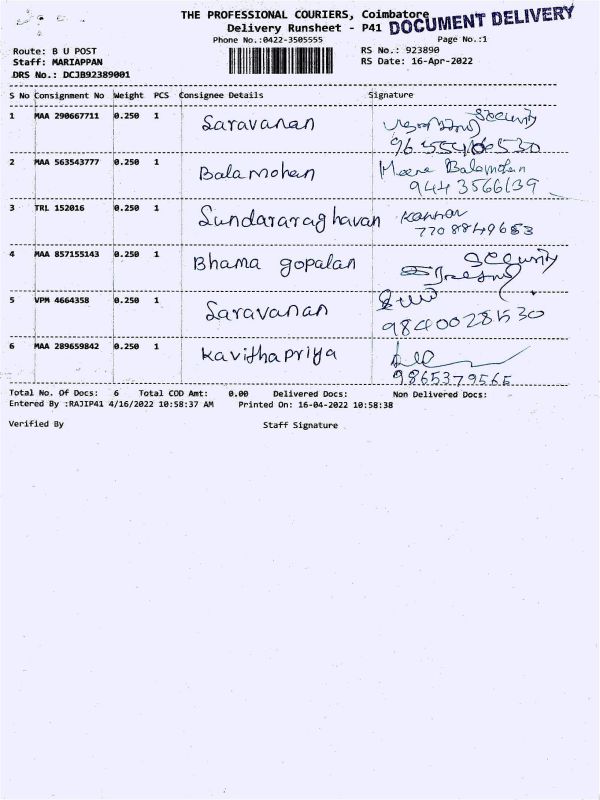 THE PROFESSIONAL COURIERS, Coimbatore
Delivery Runsheet - P41 DOCUMENT DELIVERY
Phone No.:0422-3505555 Page No.:1
Route: B U POST RS No.: 923890
Staff: MARIAPPAN RS Date: 16-Apr-2022
DRS No.: DCJB92389001
S No Consignment No Weight PCS Consignee Details Signature
1 MAA 290667711 0.250 1 Saravanan Security
2 MAA 563543777 0.250 1 Balamohan Meera Balamohan
9443566139
3 TRL 152016 0.250 1 Sundararaghavan Kannan
7708849653
4 MAA 857155143 0.250 1 Bhama gopalan Security
5 VPM 4664358 0.250 1 Saravanan
9840028530
6 MAA 289659842 0.250 1 Kavithapriya
9865379565
Total No. Of Docs: 6 Total COD Amt: 0.00 Delivered Docs: Non Delivered Docs:
Entered By :RAJIP41 4/16/2022 10:58:37 AM Printed On: 16-04-2022 10:58:38
Verified By Staff Signature